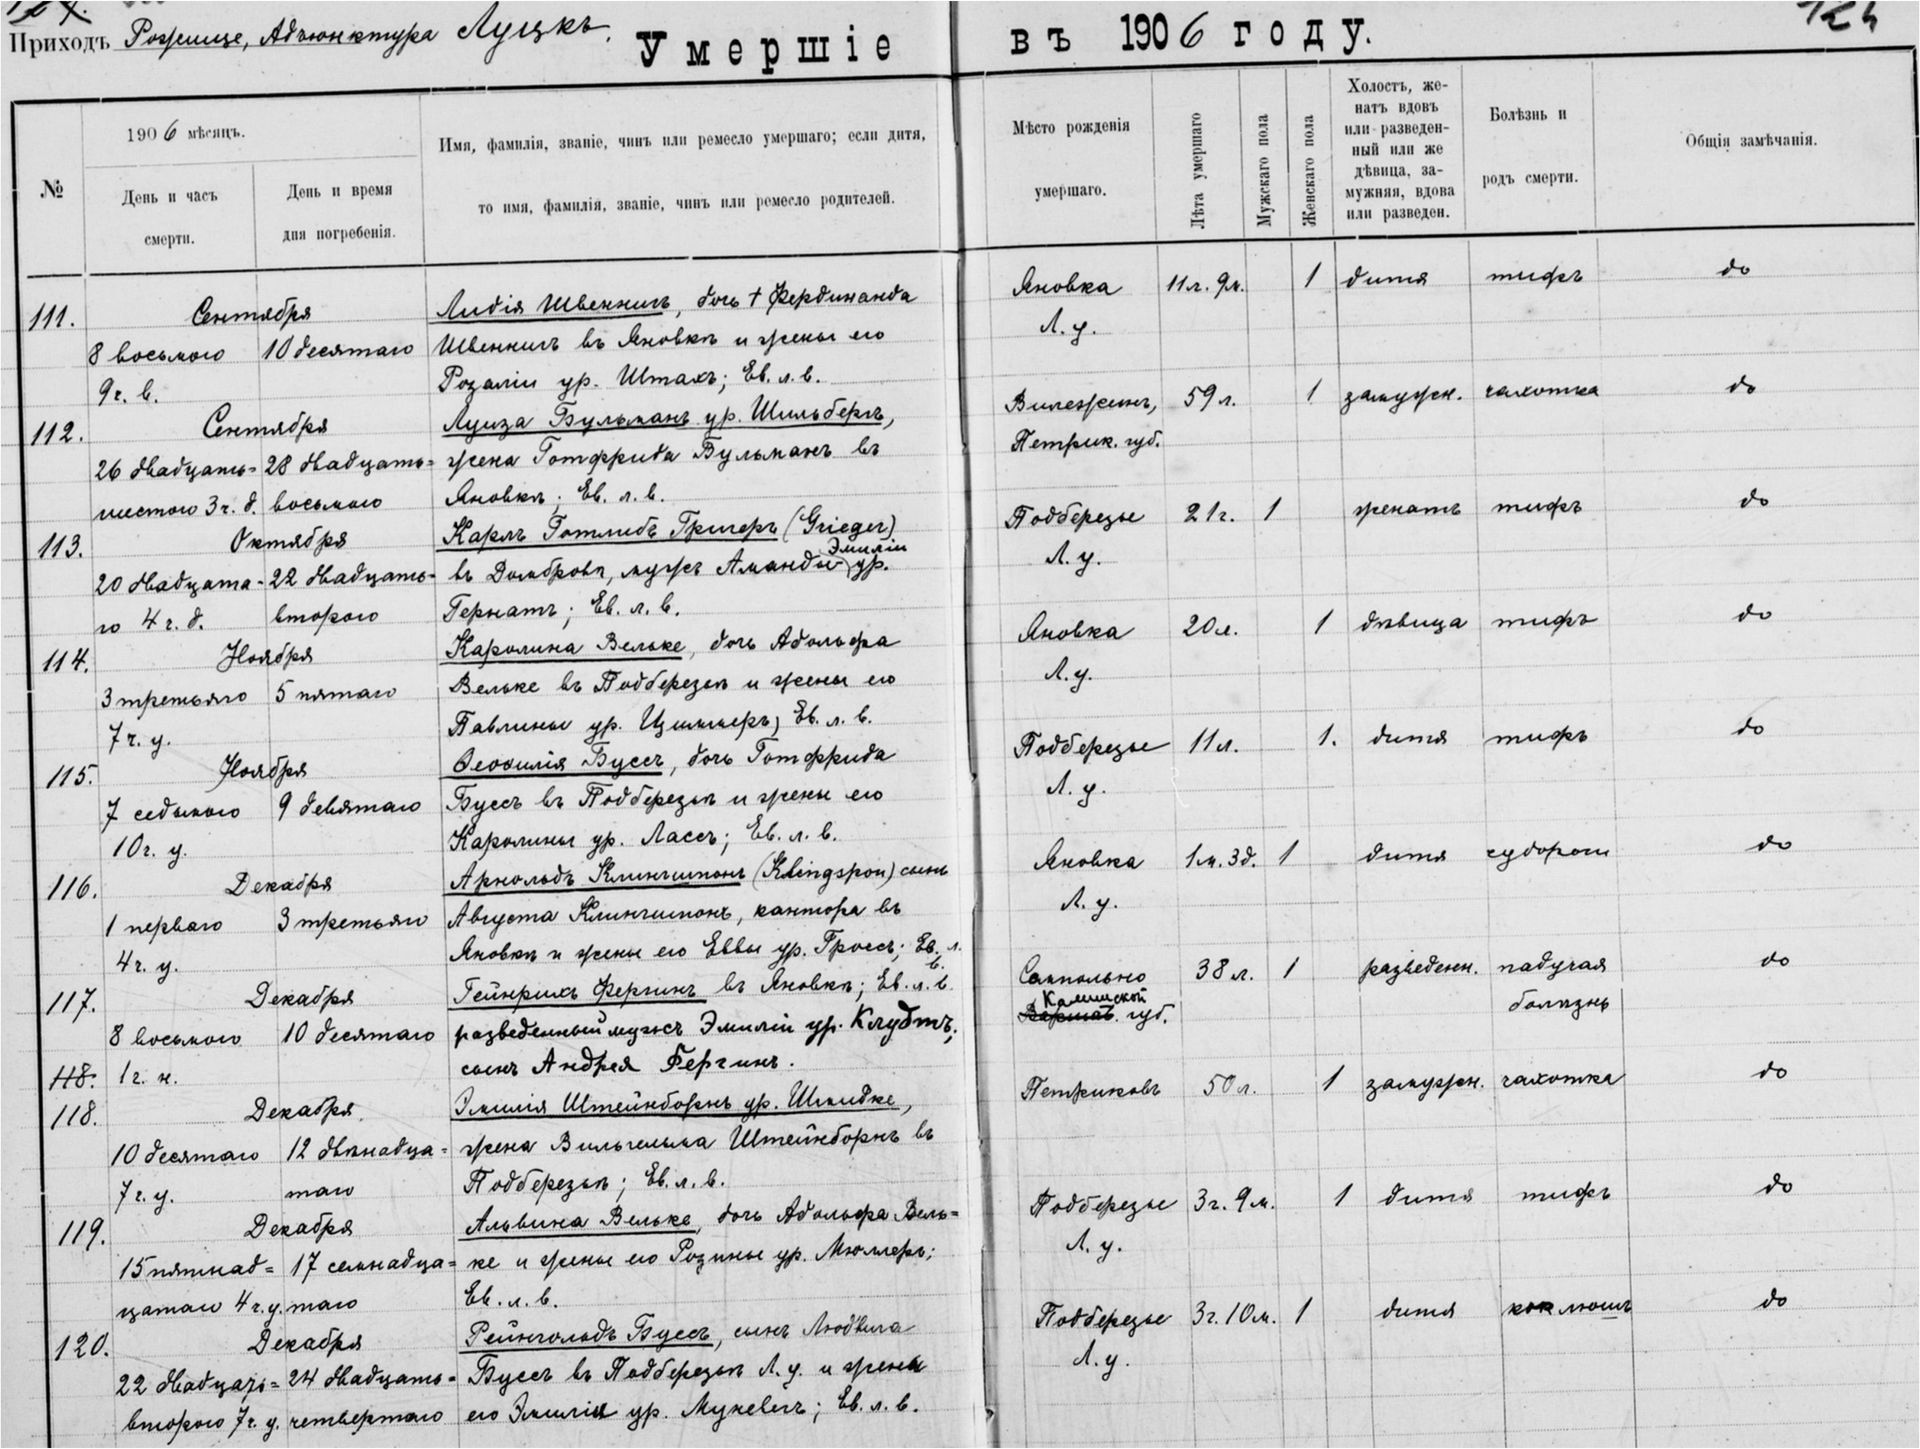 Приходъ Рожище, Адъюнктура Луцкъ.
Умершіе въ 1906 году.
124
№
1906 мѣсяцъ.
День и часъ смерти.
День и время дня погребенія.
Имя, фамилія, званіе, чинъ или ремесло умершаго; если дитя,
то имя, фамилія, званіе, чинъ или ремесло родителей.
Мѣсто рожденія
умершаго.
Лѣта умершаго
Мужскаго пола
Женскаго пола
Холостъ, же-
натъ вдовъ
или разведен-
ный или же
дѣвица, за-
мужняя, вдова
или разведен.
Болѣзнь и
родъ смерти.
Общія замѣчанія.
111. Сентября Лидія Швеннигъ, дочь † Фердинанда Яновка 11л. 9м. 1 дитя тифъ до
8 восьмого 10 десятаго Швеннигъ въ Яновкѣ и жены его Л. у.
9ч. в. Розаліи ур. Штахъ; Ев. л. в.
112. Сентября Луиза Бульманъ ур. Шильбергъ, 59л. 1 замужн. чахотка до
26 двадцать= 28 двадцать= жена Готфрида Бульманъ въ Петрик. губ.
шестого 3ч. д. восьмого Яновкѣ; Ев. л. в.
113. Октября Карлъ Готлибъ Григеръ (Grieger) Подберезье 21г. 1 женатъ тифъ до
20 двадцата- 22 двадцать- въ Домбровѣ, мужъ Аманды Эмиліи ур. Л. у.
го 4ч. д. второго Гернатъ; Ев. л. в.
114. Ноября Каролина Вельке, дочь Адольфа Яновка 20л. 1 дѣвица тифъ до
3 третьяго 5 пятаго Вельке въ Подберезьѣ и жены его Л. у.
7ч. у. Павлины ур. Циммеръ; Ев. л. в.
115. Ноября Феофилія Буссъ, дочь Готфрида Подберезье 11л. 1. дитя тифъ до
7 седьмого 9 девятаго Буссъ въ Подберезьѣ и жены его Л. у.
10ч. у. Каролины ур. Лассъ; Ев. л. в.
116. Декабря Арнольдъ Клингшпонъ (Klingspon) сынъ Яновка 1м. 3д. 1 дитя судороги до
1 перваго 3 третьяго Августа Клингшпонъ, кантора въ Л. у.
4ч. у. Яновкѣ и жены его Еввы ур. Гроссъ; Ев. л. в.
117. Декабря Гейнрихъ Фергинъ въ Яновкѣ; Ев. л. в. Сомпольно 38л. 1 разведенн. падучая до
8 восьмого 10 десятаго разведенный мужъ Эмиліи ур. Клудтъ, Варшав. Калишской губ. болѣзнь
118. 1ч. н. сынъ Андрея Фергинъ.
118. Декабря Эмилія Штейнборнъ ур. Шмидке, Петриковъ 50л. 1 замужн. чахотка до
10 десятаго 12 двѣнадца= жена Вильгельма Штейнборнъ въ
7ч. у. таго Подберезьѣ; Ев. л. в.
119. Декабря Альвина Вельке, дочь Адольфа Вель= Подберезье 3г. 9м. 1 дитя тифъ до
15 пятнад= 17 семнадца= ке и жены его Розины ур. Мюллеръ; Л. у.
цатаго 4ч. у. таго Ев. л. в.
120. Декабря Рейнгольдъ Буссъ, сынъ Людвига Подберезье 3г. 10м. 1 дитя коклюшъ до
22 двадцать= 24 двадцать= Буссъ въ Подберезьѣ Л. у. и жены Л. у.
второго 7ч. у. четвертаго его Эмиліи ур. ; Ев. л. в.